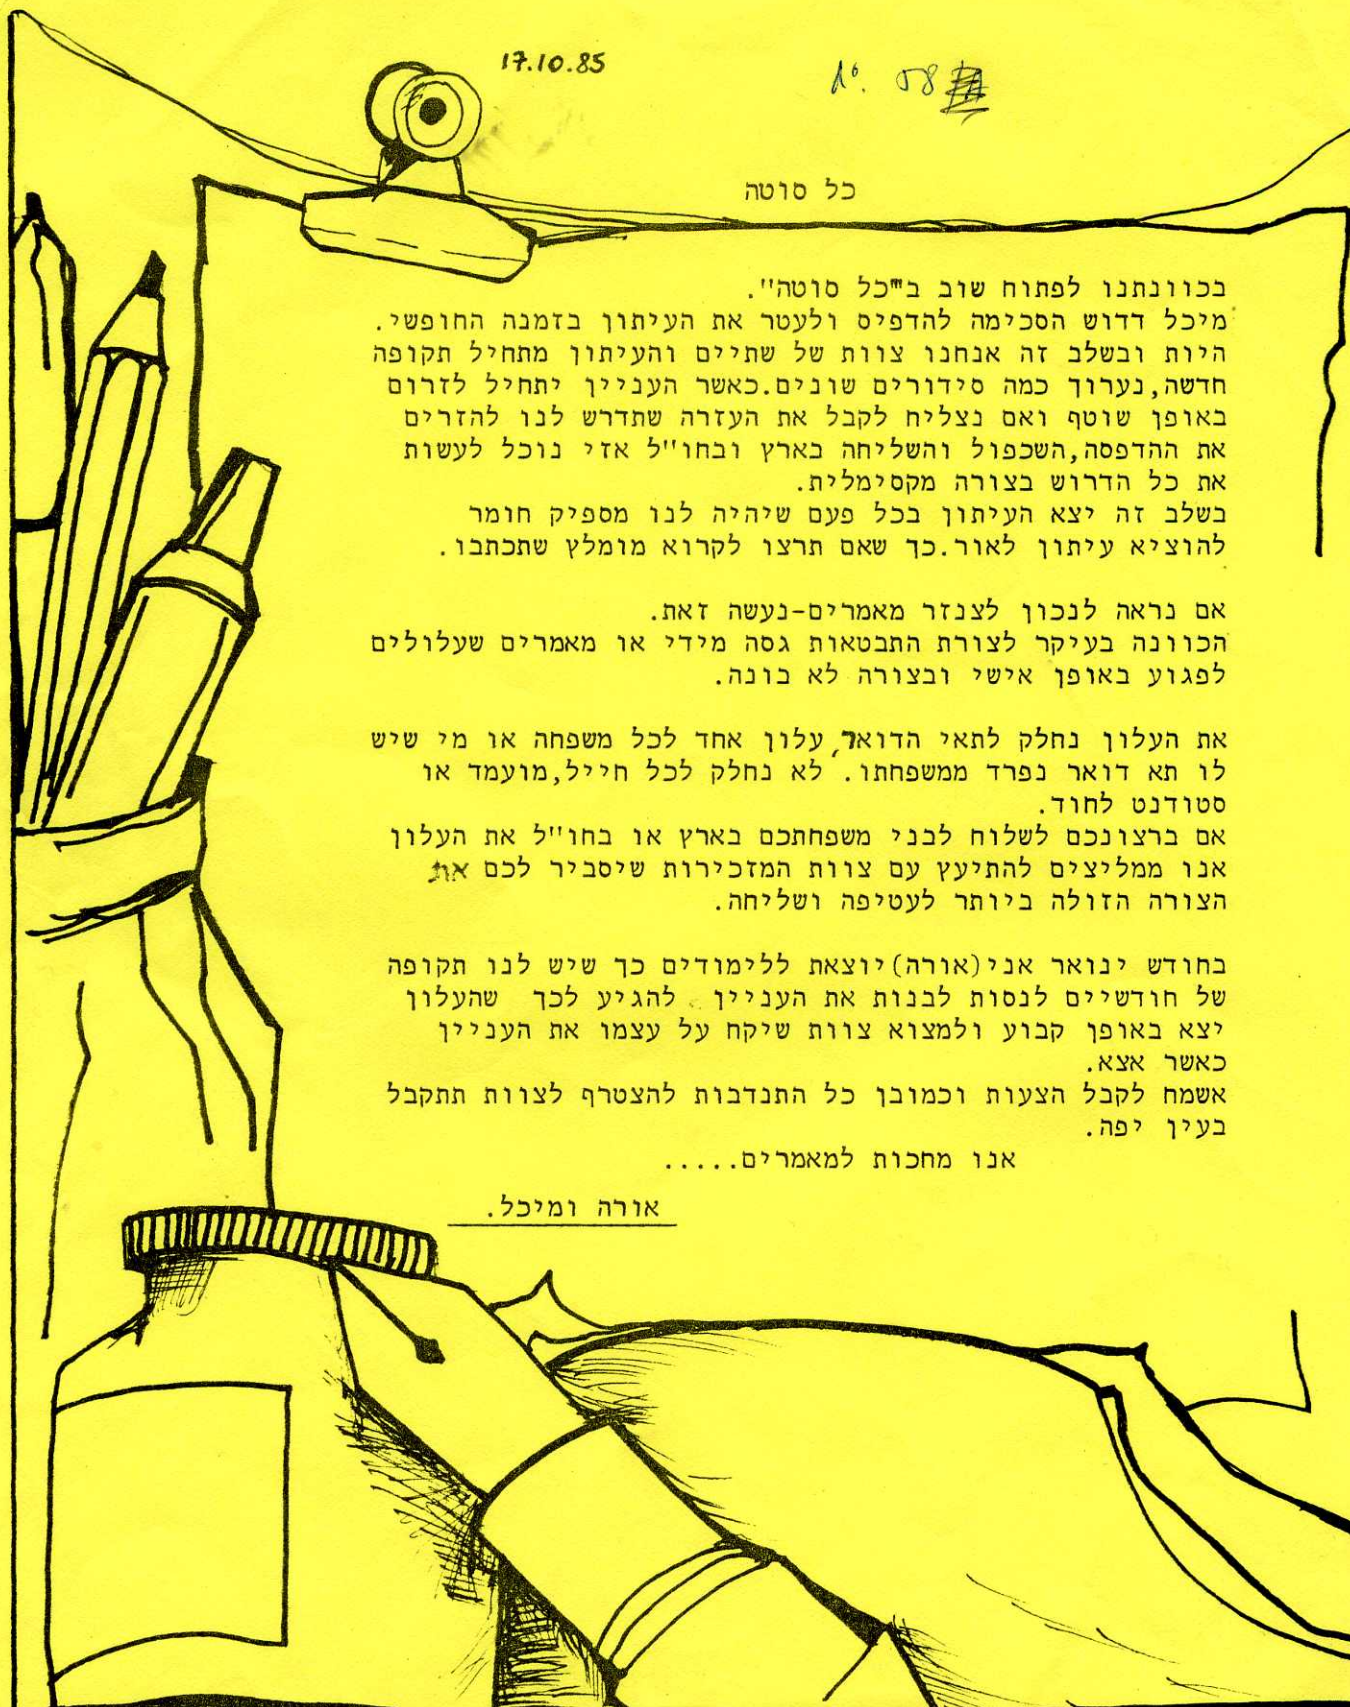 17.10.85
58
כל סוטה
בכוונתנו לפתוח שוב ב"כל סוטה".
מיכל דדוש הסכימה להדפיס ולעטר את העיתון בזמנה החופשי.
היות ובשלב זה אנחנו צוות של שתיים והעיתון מתחיל תקופה
חדשה,נערוך כמה סידורים שונים.כאשר העניין יתחיל לזרום
באופן שוטף ואם נצליח לקבל את העזרה שתדרש לנו להזרים
את ההדפסה,השכפול והשליחה בארץ ובחו"ל אזי נוכל לעשות
את כל הדרוש בצורה מקסימלית.
בשלב זה יצא העיתון בכל פעם שיהיה לנו מספיק חומר
להוציא עיתון לאור.כך שאם תרצו לקרוא מומלץ שתכתבו.
אם נראה לנכון לצנזר מאמרים-נעשה זאת.
הכוונה בעיקר לצורת התבטאות גסה מידי או מאמרים שעלולים
לפגוע באופן אישי ובצורה לא בונה.
את העלון נחלק לתאי הדואר, עלון אחד לכל משפחה או מי שיש
לו תא דואר נפרד ממשפחתו. לא נחלק לכל חייל,מועמד או
סטודנט לחוד.
אם ברצונכם לשלוח לבני משפחתכם בארץ או בחו"ל את העלון
אנו ממליצים להתיעץ עם צוות המזכירות שיסביר לכם את
הצורה הזולה ביותר לעטיפה ושליחה.
בחודש ינואר אני(אורה)יוצאת ללימודים כך שיש לנו תקופה
של חודשיים לנסות לבנות את העניין להגיע לכך שהעלון
יצא באופן קבוע ולמצוא צוות שיקח על עצמו את העניין
כאשר אצא.
אשמח לקבל הצעות וכמובן כל התנדבות להצטרף לצוות תתקבל
בעין יפה.
אנו מחכות למאמרים.....
אורה ומיכל.